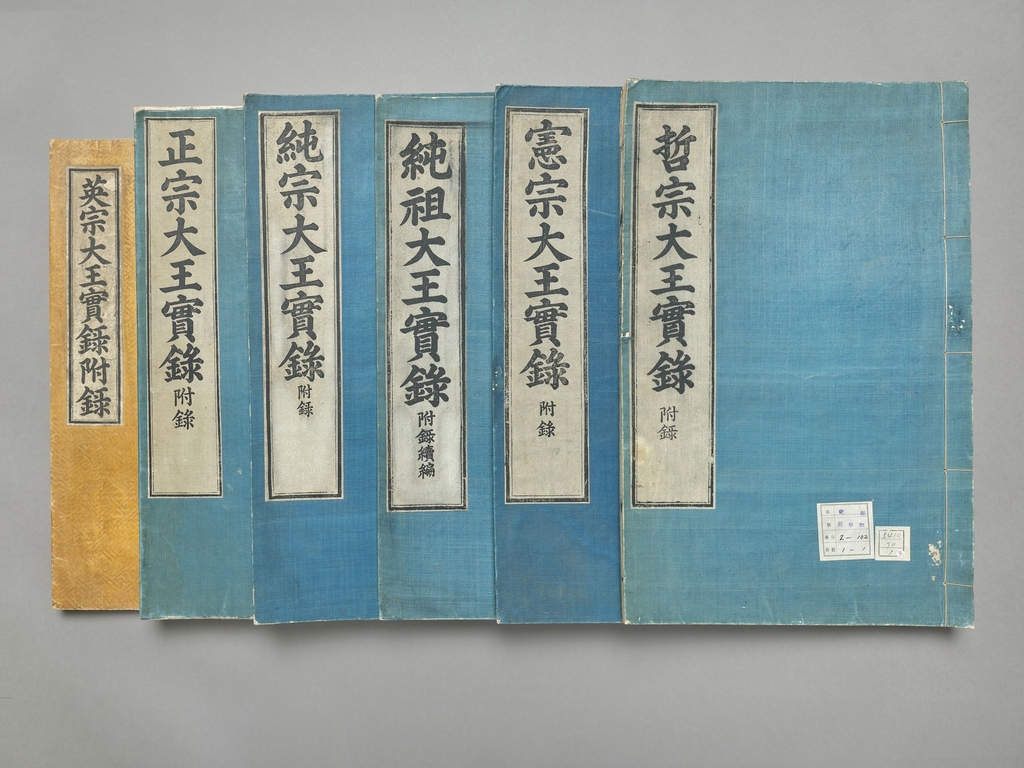 英宗大王實録附録
正宗大王實錄
附錄
純宗大王實錄
附録
純祖大王實錄
附録續編
憲宗大王實錄
附錄
哲宗大王實錄
附録
2-102
1-1